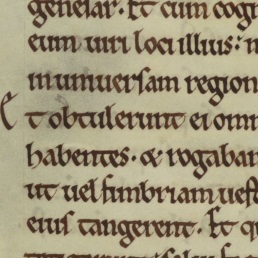 genesar. Et cum cogn
eum uiri loci illius: m
in uniuersam region
Et obtulerunt ei omn
habentes. & rogaban
ut uel fimbriam uest
eius tangerent. Et q